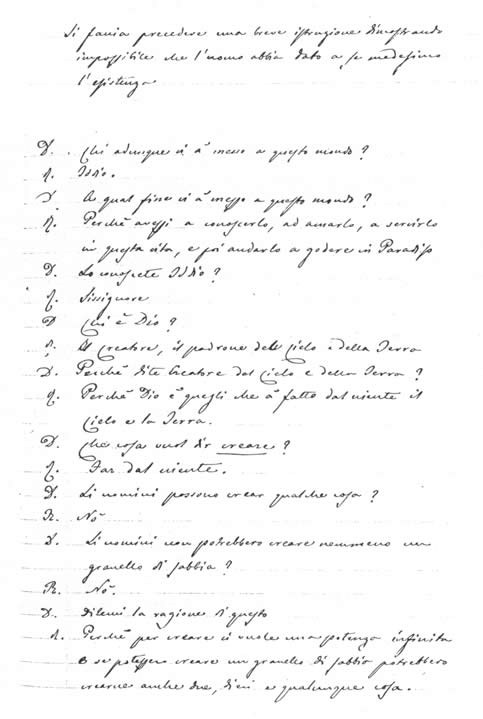 Si faccia precedere una breve istruzione dimostrando
impossibile che l'uomo abbia dato a se medesimo
l'esistenza
D. Chi adunque vi à messo a questo mondo?
R. Iddio.
D. A qual fine vi à messo a questo mondo?
R. Perchè avessi a conoscerlo, ad amarlo, a servirlo
in questa vita, e poi andarlo a godere in Paradiso
D. Lo conoscete Iddio?
R. Sissignore
D Chi è Dio?
R. Il Creatore, il padrone del Cielo e della Terra
D. Perchè dite Creatore del Cielo e della Terra?
R. Perchè Dio è quegli che à fatto dal niente il
Cielo e la Terra.
D. Che cosa vuol dir creare?
R. Far dal niente.
D. Li uomini possono crear qualche cosa?
R. Nò
D. Li uomini non potrebbero creare nemmeno un
granello di sabbia?
R. Nò.
D. Ditemi la ragione di questo
R. Perchè per creare ci vuole una potenza infinita
e se potessero creare un granello di sabbia potrebbero
crearne anche due, dieci e qualunque cosa.